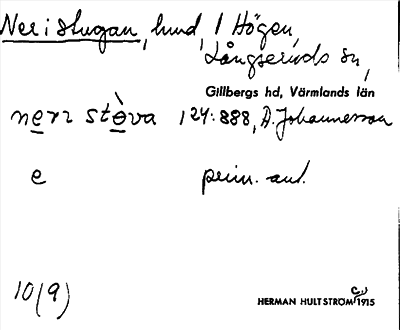 Neristugan, lund, 1 Högen,
Långseruds sn,
Gillbergs hd, Värmlands län
124:888, A. Johannesson
e
10(9)
HERMAN HULTSTRÖM 1915